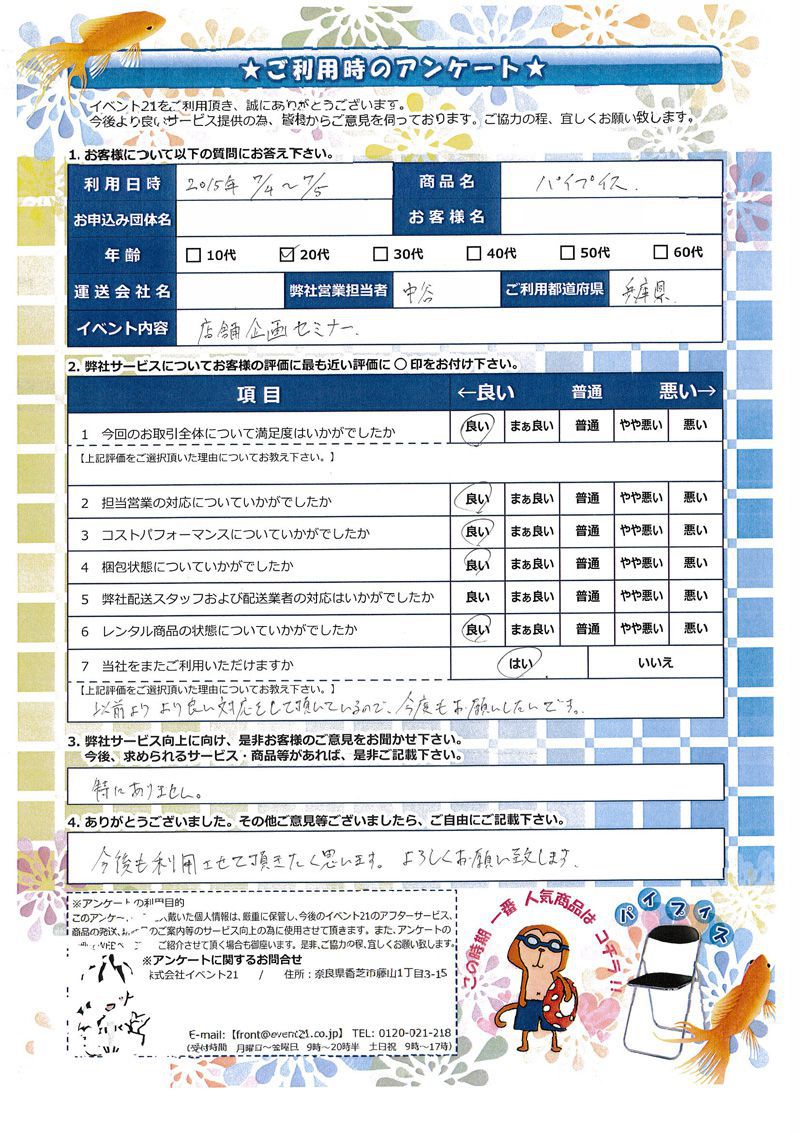 ★ご利用時のアンケート★
イベント21をご利用頂き、誠にありがとうございます。
今後より良いサービス提供の為、皆様からご意見を伺っております。ご協力の程、宜しくお願い致します。
1. お客様について以下の質問にお答え下さい。
利用日時 2015年 7/4～7/5 商品名 パイプイス.
お申込み団体名 お客様名
年齢 □10代 ☑20代 □30代 □40代 □50代 □60代
運送会社名 弊社営業担当者 中谷 ご利用都道府県 兵庫県.
イベント内容 店舗企画セミナー.
2. 弊社サービスについてお客様の評価に最も近い評価に○印をお付け下さい。
項目 ←良い 普通 悪い→
1 今回のお取引全体について満足度はいかがでしたか 良い まぁ良い 普通 やや悪い 悪い
【上記評価をご選択頂いた理由についてお教え下さい。】
2 担当営業の対応についていかがでしたか 良い まぁ良い 普通 やや悪い 悪い
3 コストパフォーマンスについていかがでしたか 良い まぁ良い 普通 やや悪い 悪い
4 梱包状態についていかがでしたか 良い まぁ良い 普通 やや悪い 悪い
5 弊社配送スタッフおよび配送業者の対応はいかがでしたか 良い まぁ良い 普通 やや悪い 悪い
6 レンタル商品の状態についていかがでしたか 良い まぁ良い 普通 やや悪い 悪い
7 当社をまたご利用いただけますか はい いいえ
【上記評価をご選択頂いた理由についてお教え下さい。】
以前より より良い対応をして頂いているので、今度もお願いしたいです。
3. 弊社サービス向上に向け、是非お客様のご意見をお聞かせ下さい。
今後、求められるサービス・商品等があれば、是非ご記載下さい。
特にありません。
4. ありがとうございました。その他ご意見等ございましたら、ご自由にご記載下さい。
今後も利用させて頂きたく思います。よろしくお願い致します.
※アンケートの利用目的
このアンケ 戴いた個人情報は、厳重に保管し、今後のイベント21のアフターサービス、
商品の発送、 のご案内等のサービス向上の為に使用させて頂きます。また、アンケートの
ご紹介させて頂く場合も御座います。是非、ご協力の程、宜しくお願い致します。
※アンケートに関するお問合せ
株式会社イベント21 / 住所：奈良県香芝市藤山1丁目3-15
E-mail:【front@event21.co.jp】 TEL: 0120-021-218
(受付時間 月曜日～金曜日 9時～20時半 土日祝 9時～17時)
この時期 一番 人気商品は コチラ!!
パイプイス